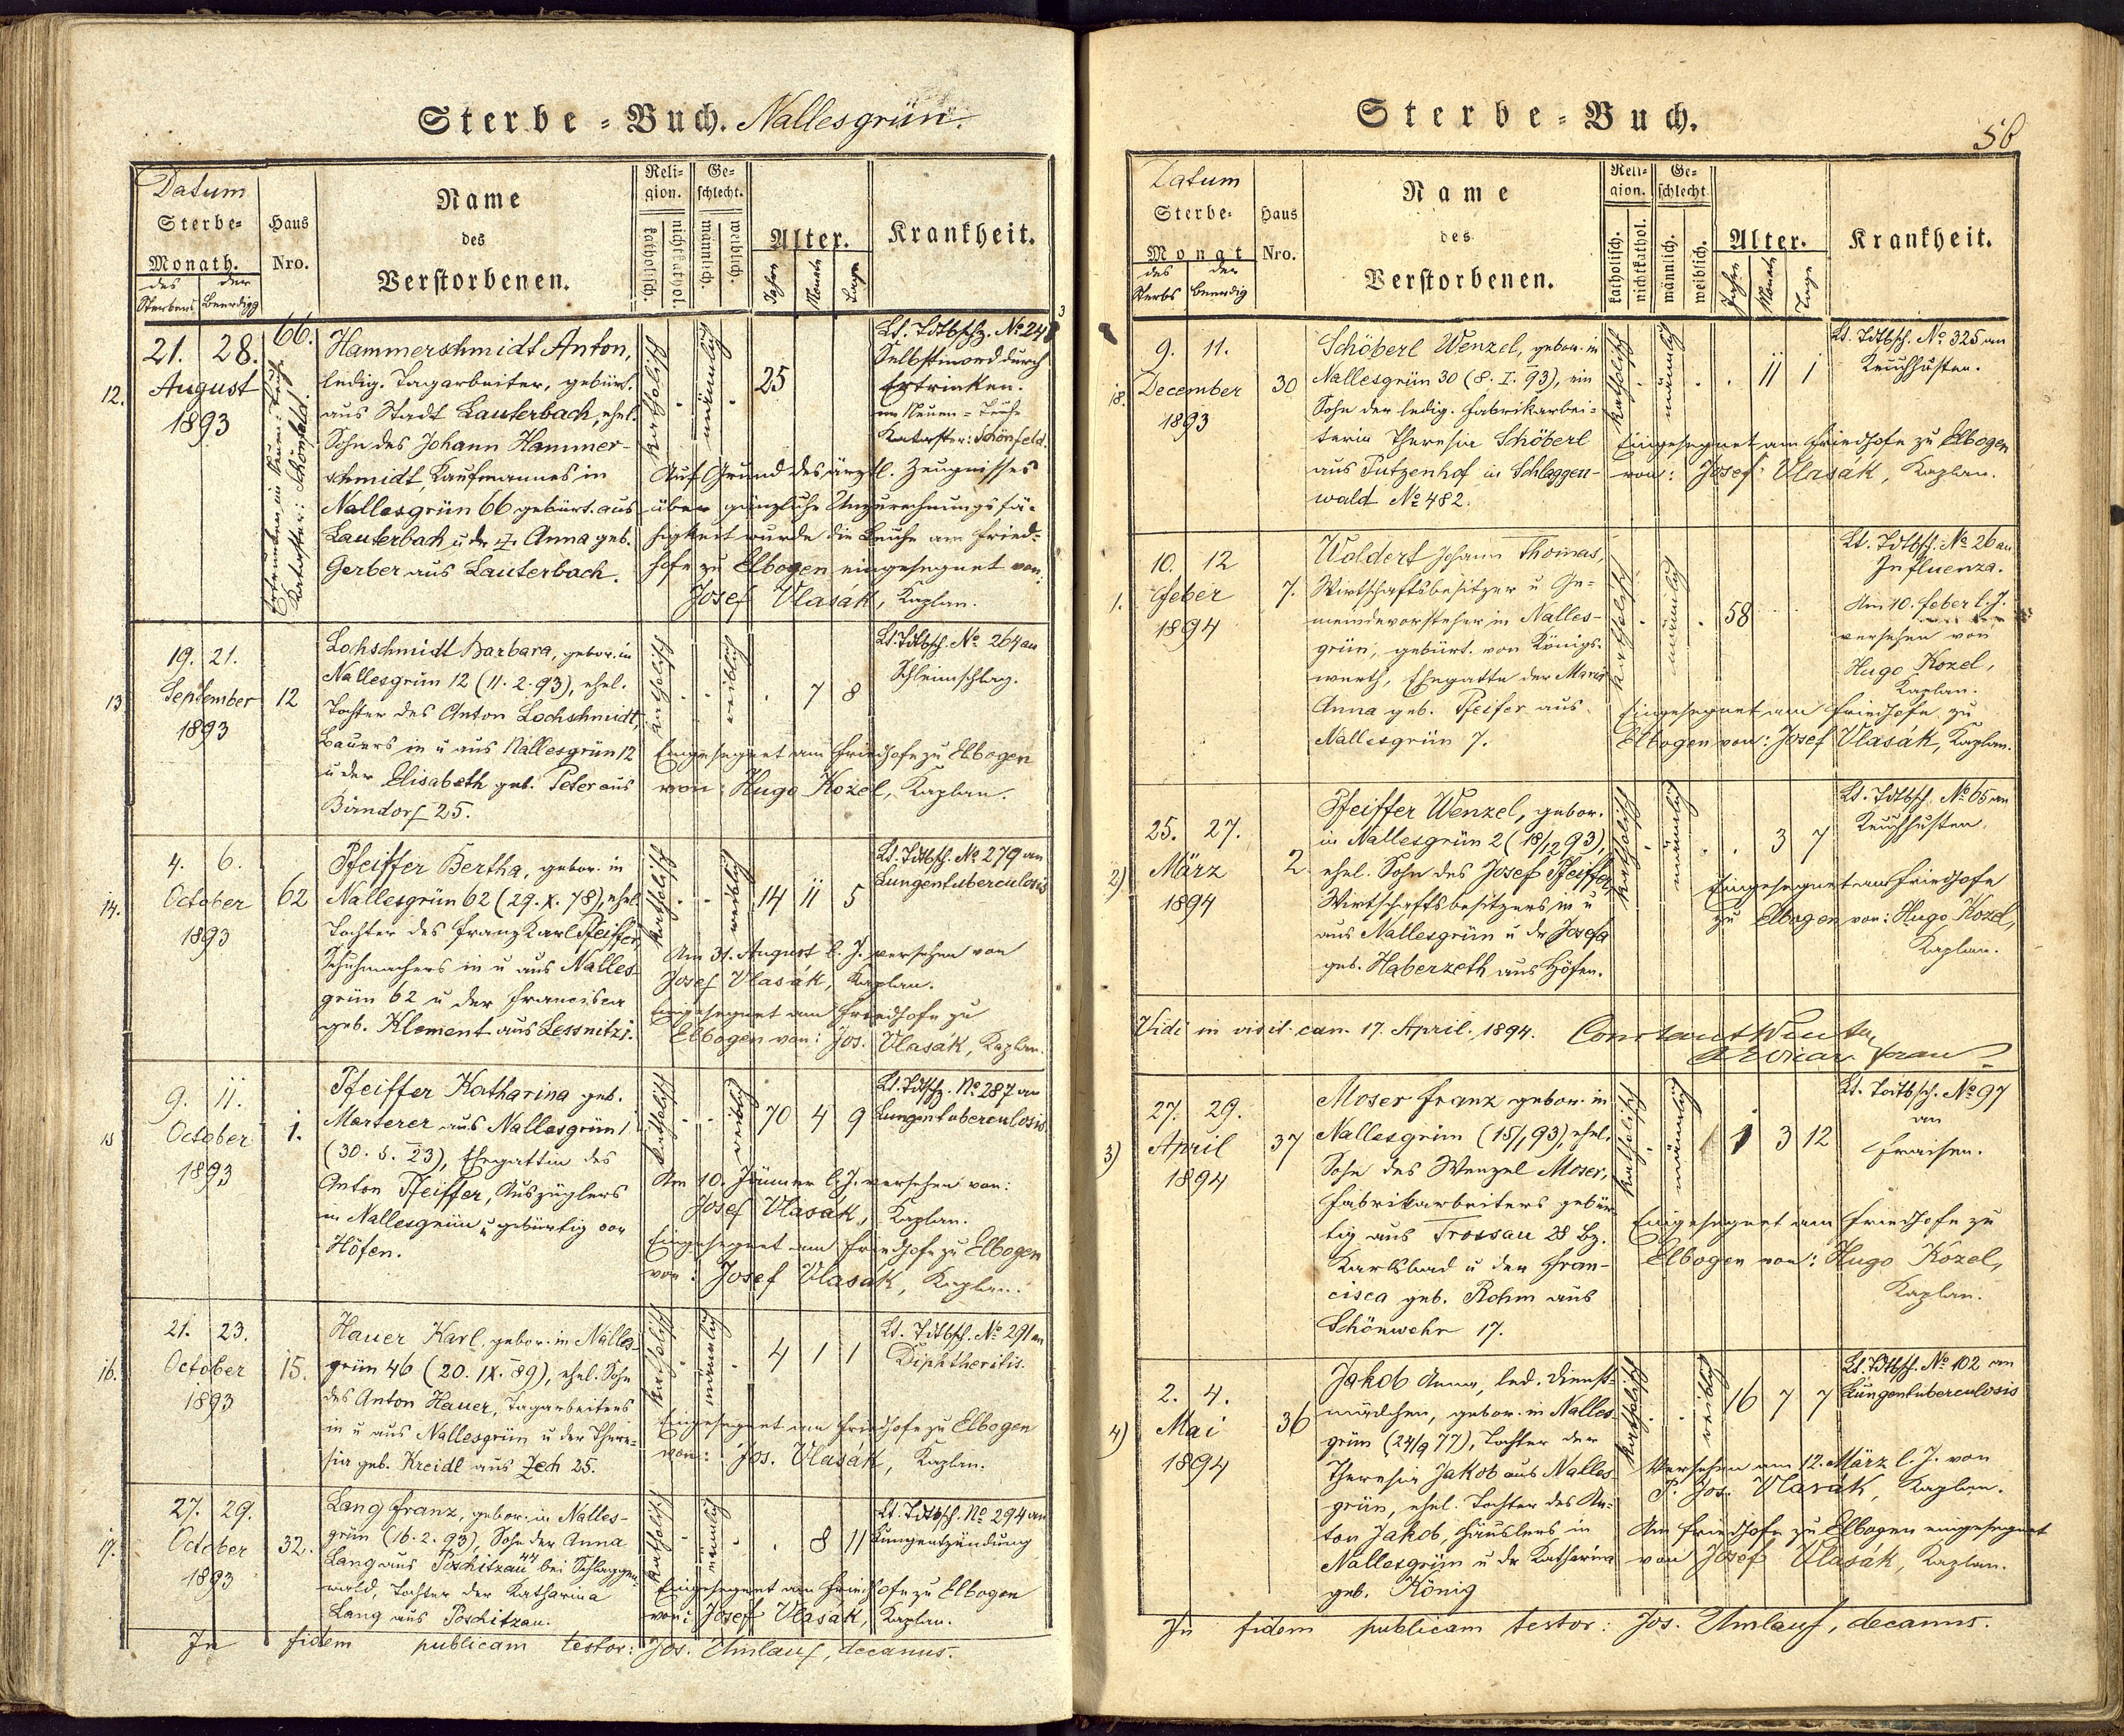 Sterbe-Buch. Nallesgrün.
Datum
Sterbe-
Monath.
des Sterbens
der Beerdigg
Haus
Nro.
Name
des
Verstorbenen.
Reli-
gion.
katholisch.
nichtkathol.
Ge-
schlecht.
männlich.
weiblich.
Alter.
Jahre
Monate
Tage
Krankheit.
12.
21. 28.
August
1893
66.
Ertrunken im Neuen-Teiche
Kataster: Schönfeld.
Hammerschmidt Anton,
ledig. Tagarbeiter, gebürt.
aus Stadt Lauterbach, ehel.
Sohn des Johann Hammer-
schmidt, Kaufmannes in
Nallesgrün 66 gebürt. aus
Lauterbach u. der Anna geb.
Gerber aus Lauterbach.
katholisch
männlich
25
Lt. Tdtbschz. No 248
Selbstmord durch
Ertrinken.
im Neuen-Teiche
Kataster: Schönfeld.
Auf Grund des ärztl. Zeugnisses
über gänzliche Unzurechnungsfä-
higkeit wurde die Leiche am Fried-
hofe zu Elbogen eingesegnet von:
Josef Vlasák, Kaplan.
13
19. 21.
September
1893
12
Lochschmidt Barbara, gebor. in
Nallesgrün 12 (11. 2. 93), ehel.
Tochter des Anton Lochschmidt,
Bauers in u aus Nallesgrün 12
u der Elisabeth geb. Peter aus
Birndorf 25.
katholisch
weiblich
7 8
Lt. Tdtbsch. No 264 an
Schleimschlag.
Eingesegnet am Friedhofe zu Elbogen
von: Hugo Kozel, Kaplan.
14.
4. 6.
October
1893
62
Pfeiffer Bertha, gebor. in
Nallesgrün 62 (29. X. 78), ehel.
Tochter des Franz Karl Pfeiffer,
Schuhmachers in u aus Nalles-
grün 62 u der Francisca
geb. Klement aus Lessnitz 1.
katholisch
weiblich
14 11 5
Lt. Tdtbsch. No 279 an
Lungentuberculosis
Am 31. August l. J. versehen von
Josef Vlasák, Kaplan.
Eingesegnet am Friedhofe zu
Elbogen von: Jos. Vlasák, Kaplan.
15
9. 11.
October
1893
1.
Pfeiffer Katharina geb.
Marterer aus Nallesgrün 1
(30. 5. 23), Ehegattin des
Anton Pfeiffer, Auszüglers
in Nallesgrün u gebürtig von
Höfen.
katholisch
weiblich
70 4 9
Lt. Tdtschz. No 287 an
Lungentuberculosis
Am 10. Jänner l. J. versehen von:
Josef Vlasák, Kaplan.
Eingesegnet am Friedhofe zu Elbogen
von: Josef Vlasák, Kaplan.
16.
21. 23.
October
1893
15.
Hauer Karl, gebor. in Nalles-
grün 46 (20. IX. 89), ehel. Sohn
des Anton Hauer, Tagarbeiters
in u aus Nallesgrün u der There-
sia geb. Kreidl aus Zech 25.
katholisch
männlich
4 1 1
Lt. Tdtbsch. No 291 an
Diphtheritis.
Eingesegnet am Friedhofe zu Elbogen
von: Jos. Vlasák, Kaplan.
17.
27. 29.
October
1893
32.
Lang Franz, gebor. in Nalles-
grün (16. 2. 93), Sohn der Anna
Lang aus Poschitzau 44 bei Schlaggen-
wald, Tochter der Katharina
Lang aus Poschitzau.
katholisch
männlich
8 11
Lt. Tdtbsch. No 294 an
Lungenentzündung
Eingesegnet am Friedhofe zu Elbogen
von: Josef Vlasák, Kaplan.
In fidem publicam testor: Jos. Umlauf, decanus.
Sterbe-Buch.
56
Datum
Sterbe-
Monat
des Sterbs
der Beerdig
Haus
Nro.
Name
des
Verstorbenen.
Reli-
gion.
katholisch.
nichtkathol.
Ge-
schlecht
männlich.
weiblich.
Alter.
Jahre
Monate
Tage
Krankheit.
18.
9. 11.
December
1893
30
Schöberl Wenzel, gebor. in
Nallesgrün 30 (8. I. 93), ein
Sohn der ledig. Fabrikarbei-
terin Theresia Schöberl
aus Putzenhof in Schlaggen-
wald No 482.
katholisch
männlich
11 1
Lt. Tdtbsch. No 325 an
Keuchhusten.
Eingesegnet am Friedhofe zu Elbogen
von: Josef Vlasák, Kaplan.
1.
10. 12
Feber
1894
7.
Woldert Johann Thomas,
Wirtschaftsbesitzer u Ge-
meindevorsteher in Nalles-
grün, gebürt. von Königs-
werth, Ehegatte der Maria
Anna geb. Pfeifer aus
Nallesgrün 7.
katholisch
männlich
58
Lt. Tdtbsch. No 26 an
Influenza.
Am 10. Feber l. J.
versehen von
Hugo Kozel,
Kaplan.
Eingesegnet am Friedhofe zu
Elbogen von: Josef Vlasák, Kaplan.
2)
25. 27.
März
1894
2.
Pfeiffer Wenzel, gebor.
in Nallesgrün 2 (18/12 93),
ehel. Sohn des Josef Pfeiffer,
Wirtschaftsbesitzers in u
aus Nallesgrün u der Josefa
geb. Haberzeth aus Höfen.
katholisch
männlich
3 7
Lt. Tdtbsch. No 65 an
Keuchhusten.
Eingesegnet am Friedhofe
zu Elbogen von: Hugo Kozel,
Kaplan.
Vidi in visit. can. 17. April. 1894.
3)
27. 29.
April
1894
37
Moser Franz gebor. in
Nallesgrün (15/1 93), ehel.
Sohn des Wenzel Moser,
Fabrikarbeiters gebür-
tig aus Trossau 28 Bz.
Karlsbad u der Fran-
cisca geb. Rohm aus
Schönwehr 17.
katholisch
männlich
1 3 12
Lt. Todtbsch. No 97
an
Fraisen.
Eingesegnet am Friedhofe zu
Elbogen von: Hugo Kozel,
Kaplan.
4)
2. 4.
Mai
1894
36
Jakob Anna, led. Dienst-
mädchen, gebor. in Nalles-
grün (24/9 77), Tochter der
Theresia Jakob aus Nalles-
grün, ehel. Tochter des An-
ton Jakob, Häuslers in
Nallesgrün u der Katharina
geb. König
katholisch
weiblich
16 7 7
Lt. Tdtbsch. No 102 an
Lungentuberculosis
Versehen am 12. März l. J. von
P. Jos. Vlasák, Kaplan.
Am Friedhofe zu Elbogen eingesegnet
von Josef Vlasák, Kaplan.
In fidem publicam testor: Jos. Umlauf, decanus.